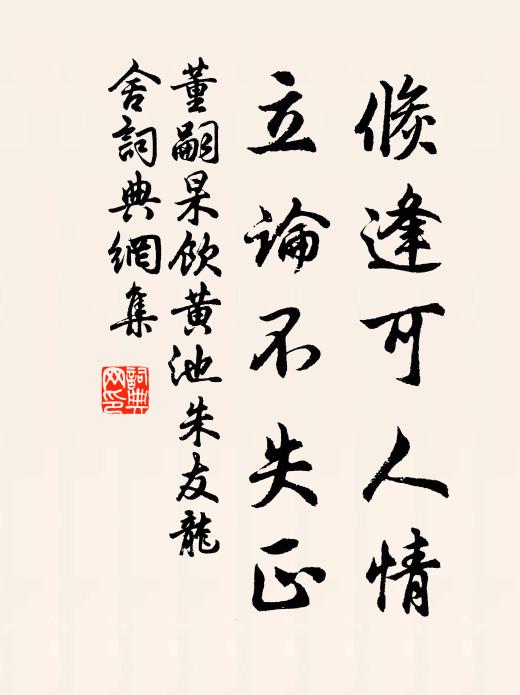 倐逢可人情
立論不失正
董嗣杲飲黄池朱友龍
舍詞典網集
詞典网印